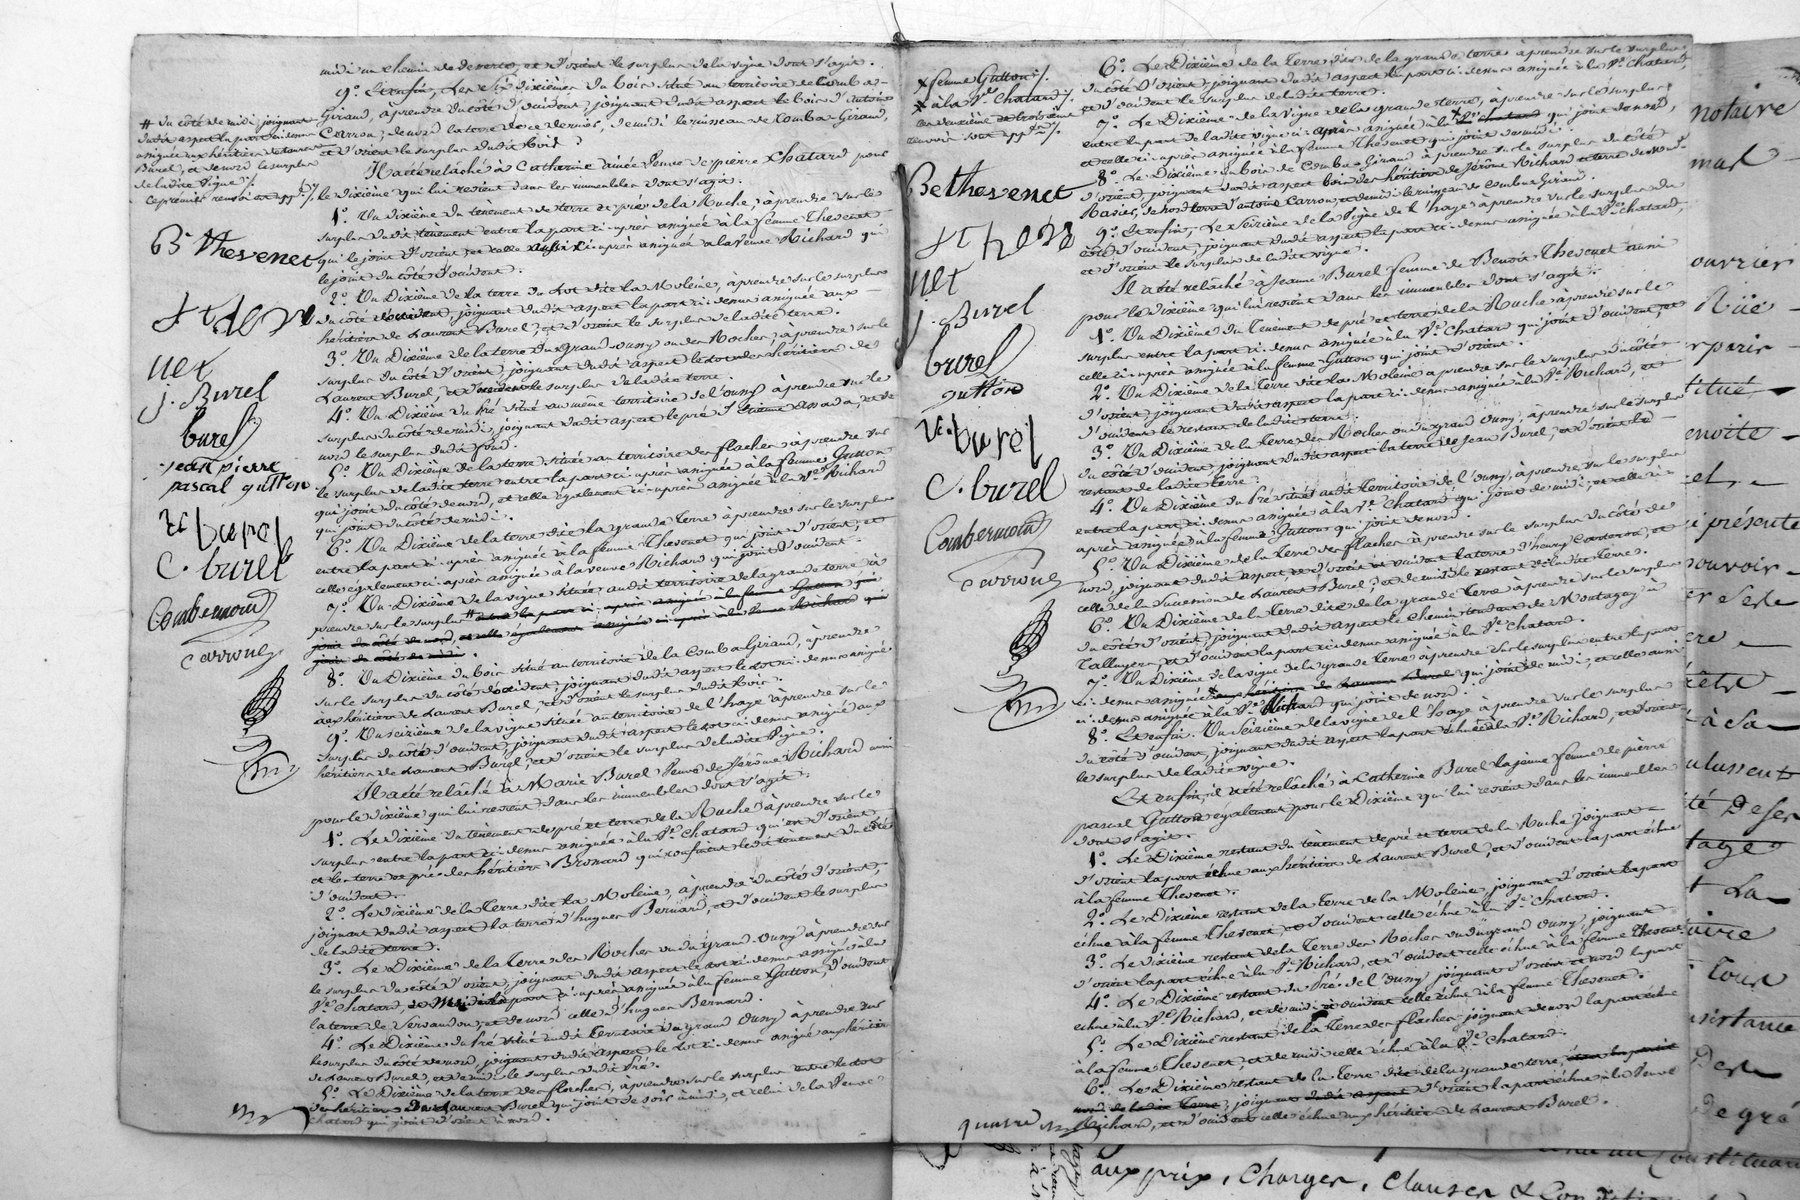 midi un chemin de desserte, et d'orient le surplus de la vigne dont s'agit.
9°. Et enfin, Les six dixièmes du bois situé au territoire de Comb a-
Giraud, à prendre du côté d'occident, joignant dudit aspect le bois d'Antoine
Carron, de nord la terre de ce dernier, de midi le ruisseau de Comba-Giraud,
et d'orient le surplus dudit bois.
Il a été relâché à Catherine ainée veuve de pierre Chatard pour
le dixième qui lui revient dans les immeubles dont s'agit.
1°. Un Dixième du tènement de terre et prés de la Ruche, à prendre sur le
surplus dudit tenement entre la part ci-après assignée à la femme Thevenet
qui le joint d'orient, et celle aussi ci-après assignée à la veuve Richard qui
le joint du côté d'occident.
2°. Un Dixième de la terre du Lot dite La Moleine, à prendre sur le surplus
du côté d'occident, joignant dudit aspect la part ci-devant assignée aux
héritiers de Laurent Burel, et d'orient le surplus de ladite terre.
3°. Un Dixième de la terre du grand ouny ou des Rocher, à prendre sur le
surplus du côté d'orient, joignant dudit aspect le lot des héritiers de
Laurent Burel, et d'occident le surplus de ladite terre.
4°. Un Dixième du Pré situé au même territoire de l'ouny à prendre sur le
surplus du côté de midi, joignant dudit aspect le pré d' et de
nord le surplus dudit fond.
5°. Un Dixième de la terre située au territoire des flaches, à prendre sur
le surplus de ladite terre entre la part ci-après assignée à la femme Gutton
qui joint du côté de nord, et celle également ci-après assignée à la Ve. Richard
qui joint du côté de midi.
6°. Un Dixième de la terre dite la grande Terre à prendre sur le surplus
entre la part ci-après assignée à la femme Thevenet qui joint d'orient, et
celle également ci-après assignée à la veuve Richard qui joint d'occident.
7°. Un Dixième de la vigne située audit territoire de la grande terre à
prendre sur le surplus # entre la part ci-après assignée à la femme Gutton qui
joint du côté de nord, et celle également assignée ci-après à la veuve Richard qui
joint du côté de midi.
8°. Un Dixième du bois situé au territoire de la Comba-Giraud, à prendre
sur le surplus du côté d'occident, joignant dudit aspect le lot ci-devant assigné
aux héritiers de Laurent Burel, et d'orient le surplus dudit bois.
9°. Un seizième de la vigne située au territoire de l'haye à prendre sur le
surplus du côté d'occident, joignant dudit aspect le lot ci-devant assigné aux
héritiers de Laurent Burel, et d'orient le surplus de ladite Vigne.
Il a été relâché à Marie Burel Veuve de Jérôme Richard aussi
pour le dixième qui lui revient dans les immeubles dont s'agit.
1°. Le dixième du tènement de pré et terre de la Ruche à prendre sur le
surplus entre la part ci-devant assignée à la Ve. Chatard qui est d'orient,
et les terre et pré des héritiers Bronard qui confinent ledit tènement du côté
d'occident.
2°. Le dixième de la Terre dite La Moleine, à prendre du côté d'orient,
joignant dudit aspect la terre d'hugues Bernard, et d'occident le surplus
de ladite terre.
3°. Le Dixième de la Terre des Rocher ou du grand ouny à prendre sur
le surplus du côté d'orient, joignant dudit aspect le lot ci-devant assigné à la
Ve. Chatard, de midi la part ci-après assignée à la femme Gutton, d'occident
la terre de Servandon, et de nord celle d'hugues Bernard.
4°. Le Dixième du pré situé audit territoire du grand ouny à prendre sur
le surplus du côté de nord, joignant dudit aspect le lot ci-devant assigné aux héritiers
de Laurent Burel, et de midi le surplus dudit pré.
5°. Le Dixième de la terre des flaches, à prendre sur le surplus entre le lot
des héritiers de Laurent Burel qui joint de soir à midi, et celui de la Veuve
Chatard qui joint d'orient à nord.
# du côté de midi joignant
dudit aspect la part ci-devant
assignée aux héritiers de Laurent
Burel, et de nord le surplus
de ladite Vigne./.
ce premier renvoi est appé./.
Bt thevenet
ft theve
net
j. Burel
burel
jean pierre
pascal gutton
ve burel
C. burel
Combermond
Carrone
x femme Gutton./.
x à la Ve. Chatard./.
un deuxième et troisième
renvoi sont appés./.
Bt thevenet
ft theve
net
j. Burel
burel
gutton
ve burel
C. burel
Combermond
Carrone
6°. Le Dixième de la Terre dite de la grande terre à prendre sur le surplus
du côté d'orient, joignant dudit aspect la part ci-devant assignée à la Ve. Chatard
et d'occident le surplus de ladite terre.
7°. Le Dixième de la Vigne de la grande terre, à prendre sur le surplus
entre la part de ladite vigne ci-après assignée à la x Ve. chatard qui joint de nord,
et celle ci-après assignée à la femme Thevenet qui joint de midi.
8°. Le Dixième du bois de Comba-Giraud à prendre sur le surplus du côté
d'orient, joignant dudit aspect bois des héritiers de Jérôme Richard et terre de
, de nord terre d'antoine Carron, et de midi le ruisseau de Comba Giraud.
9°. Et enfin, Le seizième de la Vigne de l'haye à prendre sur le surplus du
côté d'occident, joignant dudit aspect la part ci-devant assignée à la Ve. chatard,
et d'orient le surplus de ladite vigne.
Il a été relâché à Jeanne Burel femme de Benoit Thevenet aussi
pour le dixième qui lui revient dans les immeubles dont s'agit.
1°. Un Dixième du tènement de pré et terre de la Ruche à prendre sur le
surplus entre la part ci-devant assignée à la Ve. Chatard qui joint d'occident, et
celle ci-après assignée à la femme Gutton qui joint d'orient.
2°. Un Dixième de la Terre dite La Moleine à prendre sur le surplus du côté
d'orient, joignant dudit aspect la part ci-devant assignée à la Ve. Richard, et
d'occident le restant de ladite terre.
3°. Un Dixième de la terre des Rocher ou du grand ouny, à prendre sur le surplus
du côté d'occident, joignant dudit aspect la terre de Jean Burel, et d'orient le
restant de ladite terre.
4°. Un Dixième du Pré situé audit territoire de l'ouny, à prendre sur le surplus
entre la part ci-devant assignée à la Ve. Chatard qui joint de midi, et celle ci-
après assignée à la femme Gutton qui joint de nord.
5°. Un Dixième de la Terre des flaches à prendre sur le surplus du côté de
nord, joignant dudit aspect, et d'orient et occident la terre d'henry , et
celle de la Succession de Laurent Burel, et de midi le restant de ladite Terre.
6°. Un Dixième de la Terre dite de la grande Terre à prendre sur le surplus
du côté d'orient, joignant dudit aspect le Chemin tendant de Montagny à
Talluyers, et d'occident la part ci-devant assignée à la Ve. Chatard.
7°. Un Dixième de la vigne de la grande Terre à prendre sur le surplus entre la part
ci-devant assignée x aux héritiers de Laurent Burel qui joint de midi, et celle aussi
ci-devant assignée à la Ve. Richard qui joint de nord.
8°. Et enfin. Un Seizième de la vigne de l'haye à prendre sur le surplus
du côté d'occident, joignant dudit aspect la part échue à la Ve. Richard, et d'orient
le surplus de ladite vigne.
Et enfin, il a été relâché à Catherine Burel la jeune femme de pierre
pascal Gutton également pour le Dixième qui lui revient dans les immeubles
dont s'agit.
1°. Le Dixième restant du tènement de pré et terre de la Ruche joignant
d'orient la part échue aux héritiers de Laurent Burel, et d'occident la part échue
à la femme Thevenet.
2°. Le Dixième restant de la Terre de la Moleine, joignant d'orient la part
échue à la femme Thevenet, et d'occident celle échue à la Ve. Chatard.
3°. Le Dixième restant de la Terre des Rocher ou du grand ouny, joignant
d'orient la part échue à la Ve. Richard, et d'occident celle échue à la femme Thevenet.
4°. Le Dixième restant du Pré de l'ouny joignant d'orient et nord la part
échue à la Ve. Richard, et de midi et occident celle échue à la femme Thevenet.
5°. Le Dixième restant de la Terre des flaches joignant de nord la part échue
à la femme Thevenet, et de midi celle échue à la Ve. Chatard.
6°. Le Dixième restant de la Terre dite de la grande terre
nord de ladite Terre, joignant dudit aspect d'orient la part échue à la Veuve
Richard, et d'occident celle échue aux héritiers de Laurent Burel.
notaire
mal
ouvrier
Rüe
paris
titué
enoite
el,
présente
ouvoir
ulussent
té de ses
tage
La
taire
Tour
sistance
De gré
Constituan
aux prix, Charges, Clauses & Con